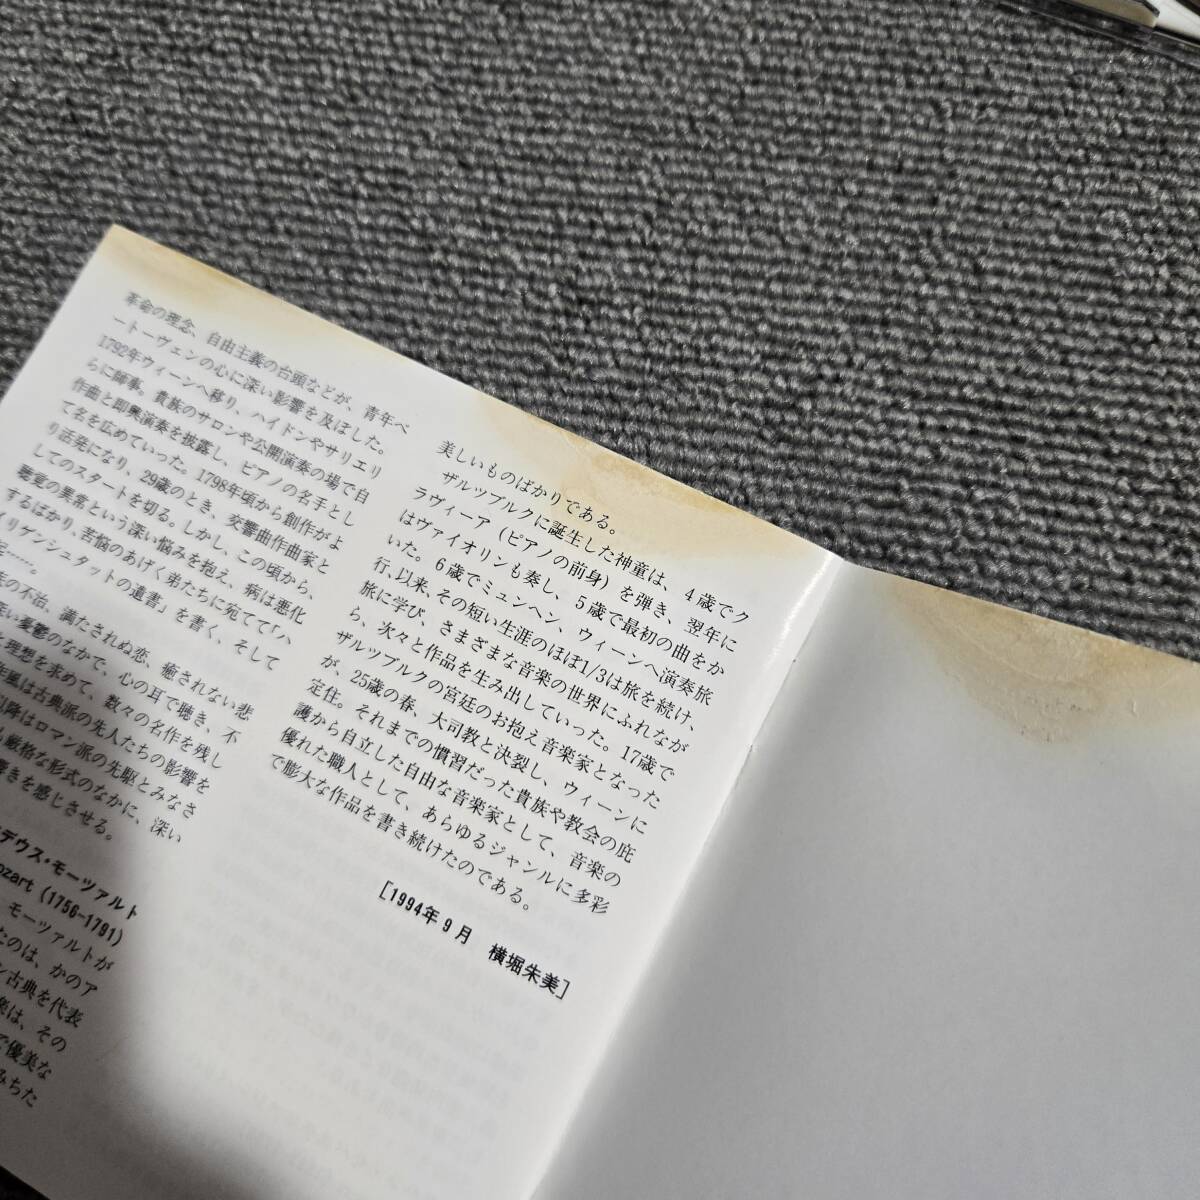 革命の理念、自由主義の台頭などが、青年ベ
ートーヴェンの心に深い影響を及ぼした。
1792年ウィーンへ移り、ハイドンやサリエリ
らに師事。貴族のサロンや公開演奏の場で自
作曲と即興演奏を披露し、ピアノの名手とし
て名を広めていった。1798年頃から創作がよ
り活発になり、29歳のとき、交響曲作曲家と
してのスタートを切る。しかし、この頃から、
聴覚の異常という深い悩みを抱え、病は悪化
するばかり、苦悩のあげく弟たちに宛てて「ハ
イリゲンシュタットの遺書」を書く、そして
の不治、満たされぬ恋、癒されない悲
い憂鬱のなかで、心の耳で聴き、不
理想を求めて、数々の名作を残し
風は古典派の先人たちの影響を
以降はロマン派の先駆とみなさ
厳格な形式のなかに、深い
響きを感じさせる。
デウス・モーツァルト
ozart (1756-1791)
モーツァルトが
たのは、かのア
ン古典を代表
楽は、その
で優美な
みちた
美しいものばかりである。
ザルツブルクに誕生した神童は、4歳でク
ラヴィーア（ピアノの前身）を弾き、翌年に
はヴァイオリンも奏し、5歳で最初の曲をか
いた。6歳でミュンヘン、ウィーンへ演奏旅
行、以来、その短い生涯のほぼ1/3は旅を続け、
旅に学び、さまざまな音楽の世界にふれなが
ら、次々と作品を生み出していった。17歳で
ザルツブルクの宮廷のお抱え音楽家となった
が、25歳の春、大司教と決裂し、ウィーンに
定住。それまでの慣習だった貴族や教会の庇
護から自立した自由な音楽家として、音楽の
優れた職人として、あらゆるジャンルに多彩
で膨大な作品を書き続けたのである。
[1994年9月　横堀朱美]